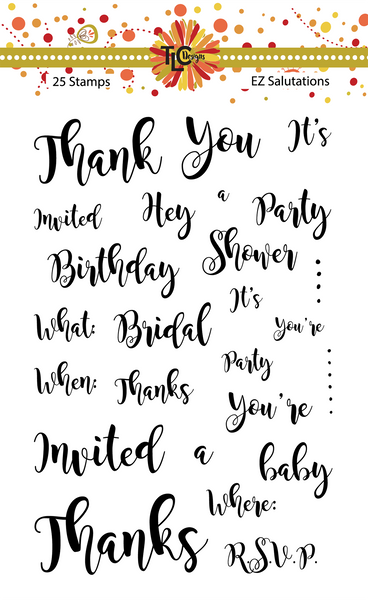 TLC Designs
25 Stamps EZ Salutations
Thank You It's
Invited Hey a Party
Birthday Shower
It's
What: Bridal You're
Party
When: Thanks
You're
Invited a baby
Where:
Thanks R.S.V.P.